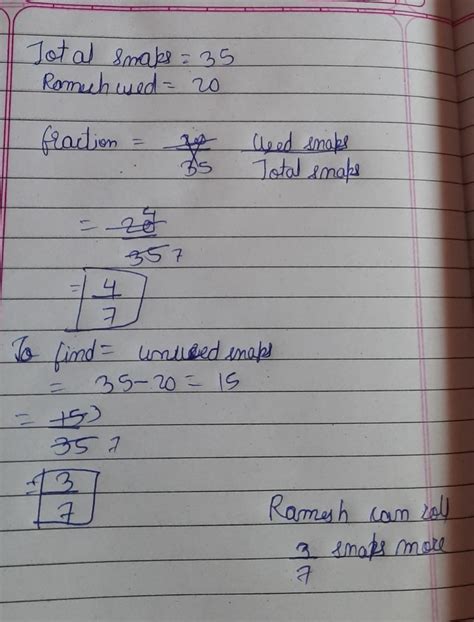 Total snaps = 35
Ramesh used = 20
fraction = 20/35 Used snaps/Total snaps
= 20 4/35 7
= 4/7
To find = unused snaps
= 35-20 = 15
= 15 3/35 7
= 3/7
Ramesh can roll
3/7 snaps more